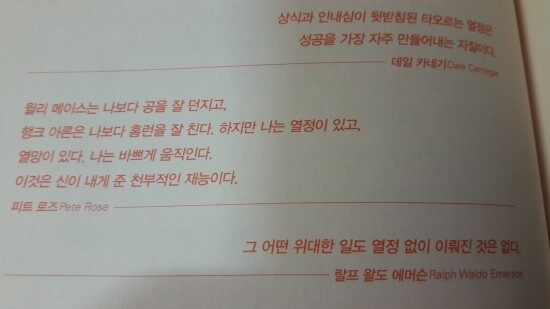 상식과 인내심이 뒷받침된 타오르는 열정은
성공을 가장 자주 만들어내는 자질이다.
데일 카네기 Dale Carnegie
윌리 메이스는 나보다 공을 잘 던지고,
행크 아론은 나보다 홈런을 잘 친다. 하지만 나는 열정이 있고,
열망이 있다. 나는 바쁘게 움직인다.
이것은 신이 내게 준 천부적인 재능이다.
피트 로즈 Pete Rose
그 어떤 위대한 일도 열정 없이 이뤄진 것은 없다.
랄프 왈도 에머슨 Ralph Waldo Emerson